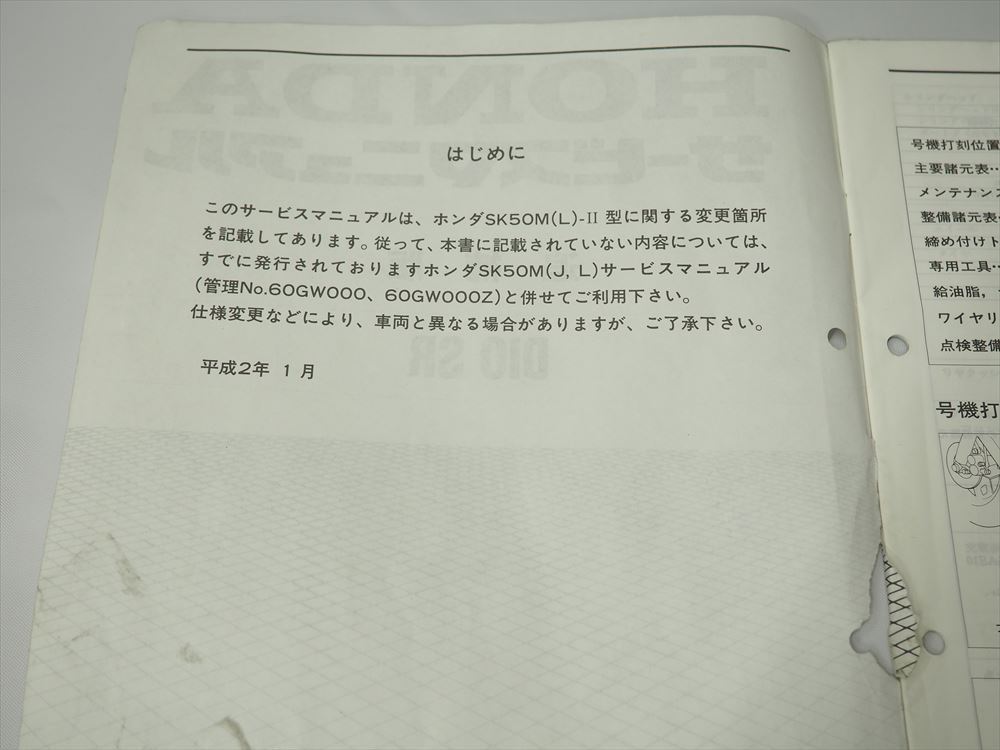 はじめに
このサービスマニュアルは、ホンダSK50M(L)-II 型に関する変更箇所
を記載してあります。従って、本書に記載されていない内容については、
すでに発行されておりますホンダSK50M(J, L)サービスマニュアル
(管理No.60GW000、60GW000Z)と併せてご利用下さい。
仕様変更などにより、車両と異なる場合がありますが、ご了承下さい。
平成2年 1月
号機打刻位置
主要諸元表‥
メンテナンス
整備諸元表‥
締め付けト
専用工具‥
給油脂，
ワイヤリ
点検整備
号機打